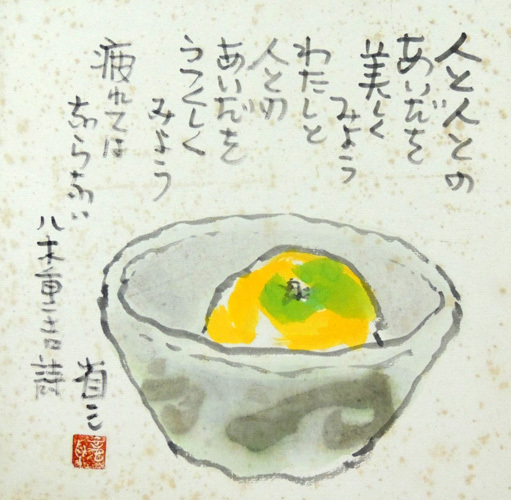 人と人との
あいだを
美しく
みよう
わたしと
人との
あいだを
うつくしく
みよう
疲れては
ならない
八木重吉詩
省三